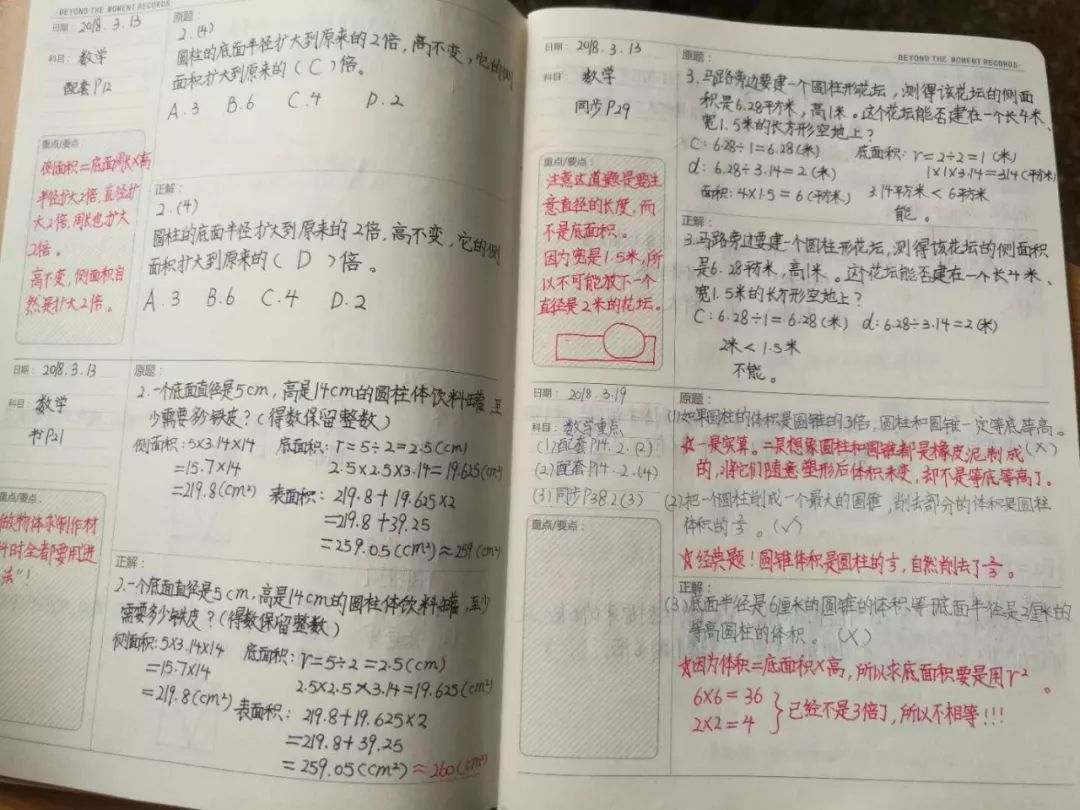 BEYOND THE MOMENT RECORDS
日期：2018.3.13
科目：数学
配套P12
原题：
2.(4)
圆柱的底面半径扩大到原来的2倍，高不变，它的侧
面积扩大到原来的（C）倍。
A.3 B.6 C.4 D.2
重点/要点
侧面积=底面周长×高
半径扩大2倍，直径扩
大2倍，周长也扩大
2倍。
高不变，侧面积自
然是扩大2倍。
正解：
2.(4)
圆柱的底面半径扩大到原来的2倍，高不变，它的侧
面积扩大到原来的（D）倍。
A.3 B.6 C.4 D.2
日期：2018.3.13
科目：数学
书P21
原题：
2.一个底面直径是5cm，高是14cm的圆柱体饮料罐，至
少需要多少铁皮？(得数保留整数)
侧面积：5×3.14×14 底面积：r=5÷2=2.5(cm)
=15.7×14 2.5×2.5×3.14=19.625(cm²)
=219.8(cm²) 表面积：219.8+19.625×2
=219.8+39.25
=259.05(cm²)≈259(cm²)
重点/要点：
做物体求制作材
料时全都要用进
法"！
正解：
2.一个底面直径是5cm，高是14cm的圆柱体饮料罐，至少
需要多少铁皮？(得数保留整数)
侧面积：5×3.14×14 底面积：r=5÷2=2.5(cm)
=15.7×14 2.5×2.5×3.14=19.625(cm²)
=219.8(cm²) 表面积：219.8+19.625×2
=219.8+39.25
=259.05(cm²)≈260(cm²)
BEYOND THE MOMENT RECORDS
日期：2018.3.13
科目：数学
同步P29
原题：
3.马路旁边要建一个圆柱形花坛，测得该花坛的侧面
积是6.28平方米，高1米。这个花坛能否建在一个长4米、
宽1.5米的长方形空地上？
C：6.28÷1=6.28(米) 底面积：r=2÷2=1(米)
d：6.28÷3.14=2(米) 1×1×3.14=3.14(平方米)
面积：4×1.5=6(平方米) 3.14平方米<6平方米
能。
重点/要点：
注意这道题是要注
意直径的长度，而
不是底面积。
因为宽是1.5米，所
以不可能放下一个
直径是2米的花坛。
正解：
3.马路旁边要建一个圆柱形花坛，测得该花坛的侧面积
是6.28平方米，高1米。这个花坛能否建在一个长4米、
宽1.5米的长方形空地上？
C：6.28÷1=6.28(米) d：6.28÷3.14=2(米)
2米<1.5米
不能。
日期：2018.3.19
科目：数学重点
(1)配套P14.2.(2)
(2)配套P14.2.(4)
(3)同步P38.2(3)
重点/要点：
原题：
(1)如果圆柱的体积是圆锥的3倍，圆柱和圆锥一定等底等高。
(×)
☆一是实算。二是想象圆柱和圆锥都是橡皮泥制成
的，将它们随意塑形后体积未变，却不是等底等高了。
(2)把一个圆柱削成一个最大的圆锥，削去部分的体积是圆柱
体积的⅔。(√)
☆经典题！圆锥体积是圆柱的⅓，自然削去了⅔。
正解：
(3)底面半径是6厘米的圆锥的体积等于底面半径是2厘米的
等高圆柱的体积。(×)
☆因为体积=底面积×高，所以求底面积要是用r²。
6×6=36
2×2=4 }已经不是3倍了，所以不相等！！！